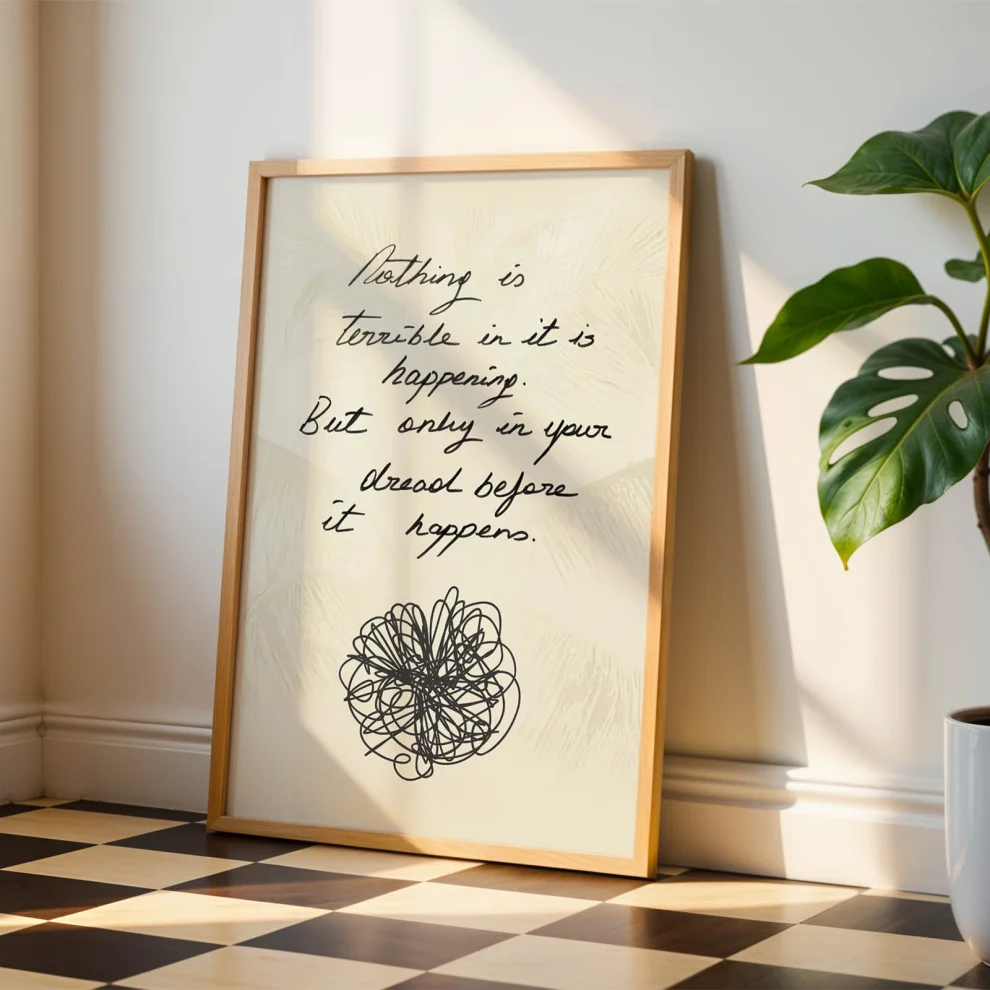 Nothing is
terrible in it is
happening.
But only in your
dread before
it happens.